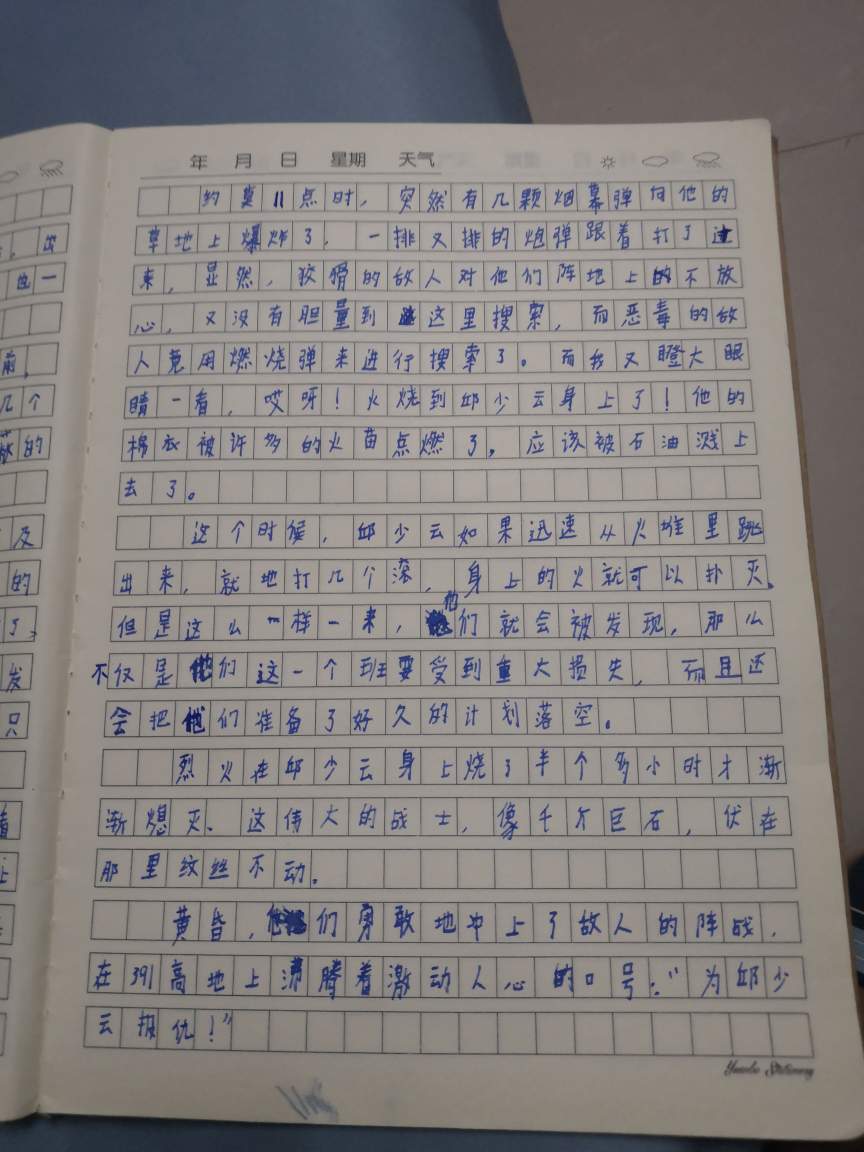 年 月 日 星期 天气
约莫11点时，突然有几颗烟幕弹向他的
草地上爆炸了，一排又排的炮弹跟着打了过
来，显然，狡猾的敌人对他们阵地上的不放
心，又没有胆量到这里搜索，而恶毒的敌
人竟用燃烧弹来进行搜索了。而我又瞪大眼
睛一看，哎呀！火烧到邱少云身上了！他的
棉衣被许多的火苗点燃了，应该被石油溅上
去了。
这个时候，邱少云如果迅速从火堆里跳
出来，就地打几个滚，身上的火就可以扑灭。
但是这么一样一来，他们就会被发现，那么
不仅是他们这一个班要受到重大损失，而且还
会把他们准备了好久的计划落空。
烈火在邱少云身上烧了半个多小时才渐
渐熄灭、这伟大的战士，像千斤巨石，伏在
那里纹丝不动。
黄昏，他们勇敢地冲上了敌人的阵战，
在391高地上沸腾着激动人心的口号：“为邱少
云报仇！”
前，
几个
的
及
的
了，
发
只
Yuanbo Stationery